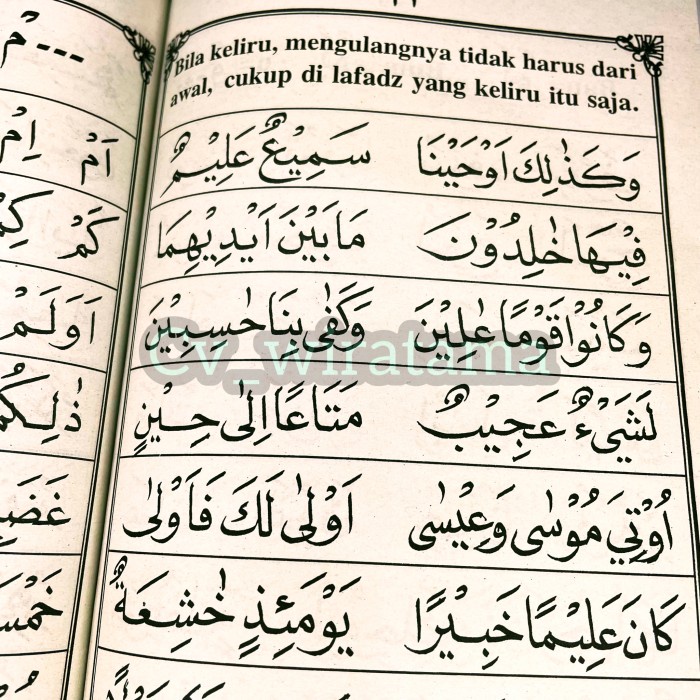 Bila keliru, mengulangnya tidak harus dari
awal, cukup di lafadz yang keliru itu saja.
وَكَذٰلِكَ اَوْحَيْنَا سَمِيْعٌ عَلِيْمٌ
فِيْهَا خٰلِدُوْنَ مَا بَيْنَ اَيْدِيْهِمَا
وَكَانُوْا قَوْمًا عٰلِيْنَ وَكَفٰى بِنَا حٰسِبِيْنَ
لَشَيْءٌ عَجِيْبٌ مَتَاعًا اِلٰى حِيْنٍ
اُوْتِيَ مُوْسٰى وَعِيْسٰى اَوْلٰى لَكَ فَاَوْلٰى
كَانَ عَلِيْمًا خَبِيْرًا يَوْمَئِذٍ خٰشِعَةٌ
اَمْ اِمْ
كَمْ
اَوَلَمْ
Cv_wiratama